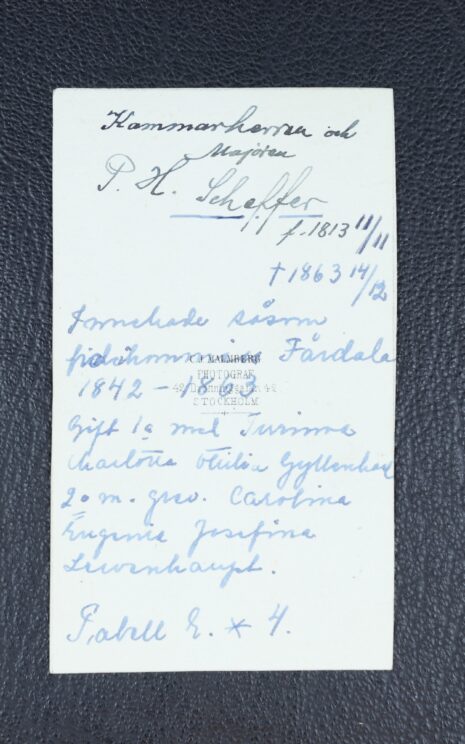 Kammarherren och
Majoren
P. H. Scheffer
f. 1813 11/11
† 1863 14/12
Innehade såsom
fideikommiss Färdala
1842 – 1863
C. J. MALMBERG
PHOTOGRAF
42 Drottninggatan 42
STOCKHOLM
Gift 1o med Turinna
Charlotta Otilia Gyllenhaal
2o m. grev. Carolina
Eugenia Josefina
Lewenhaupt.
Tabell E. * 4.